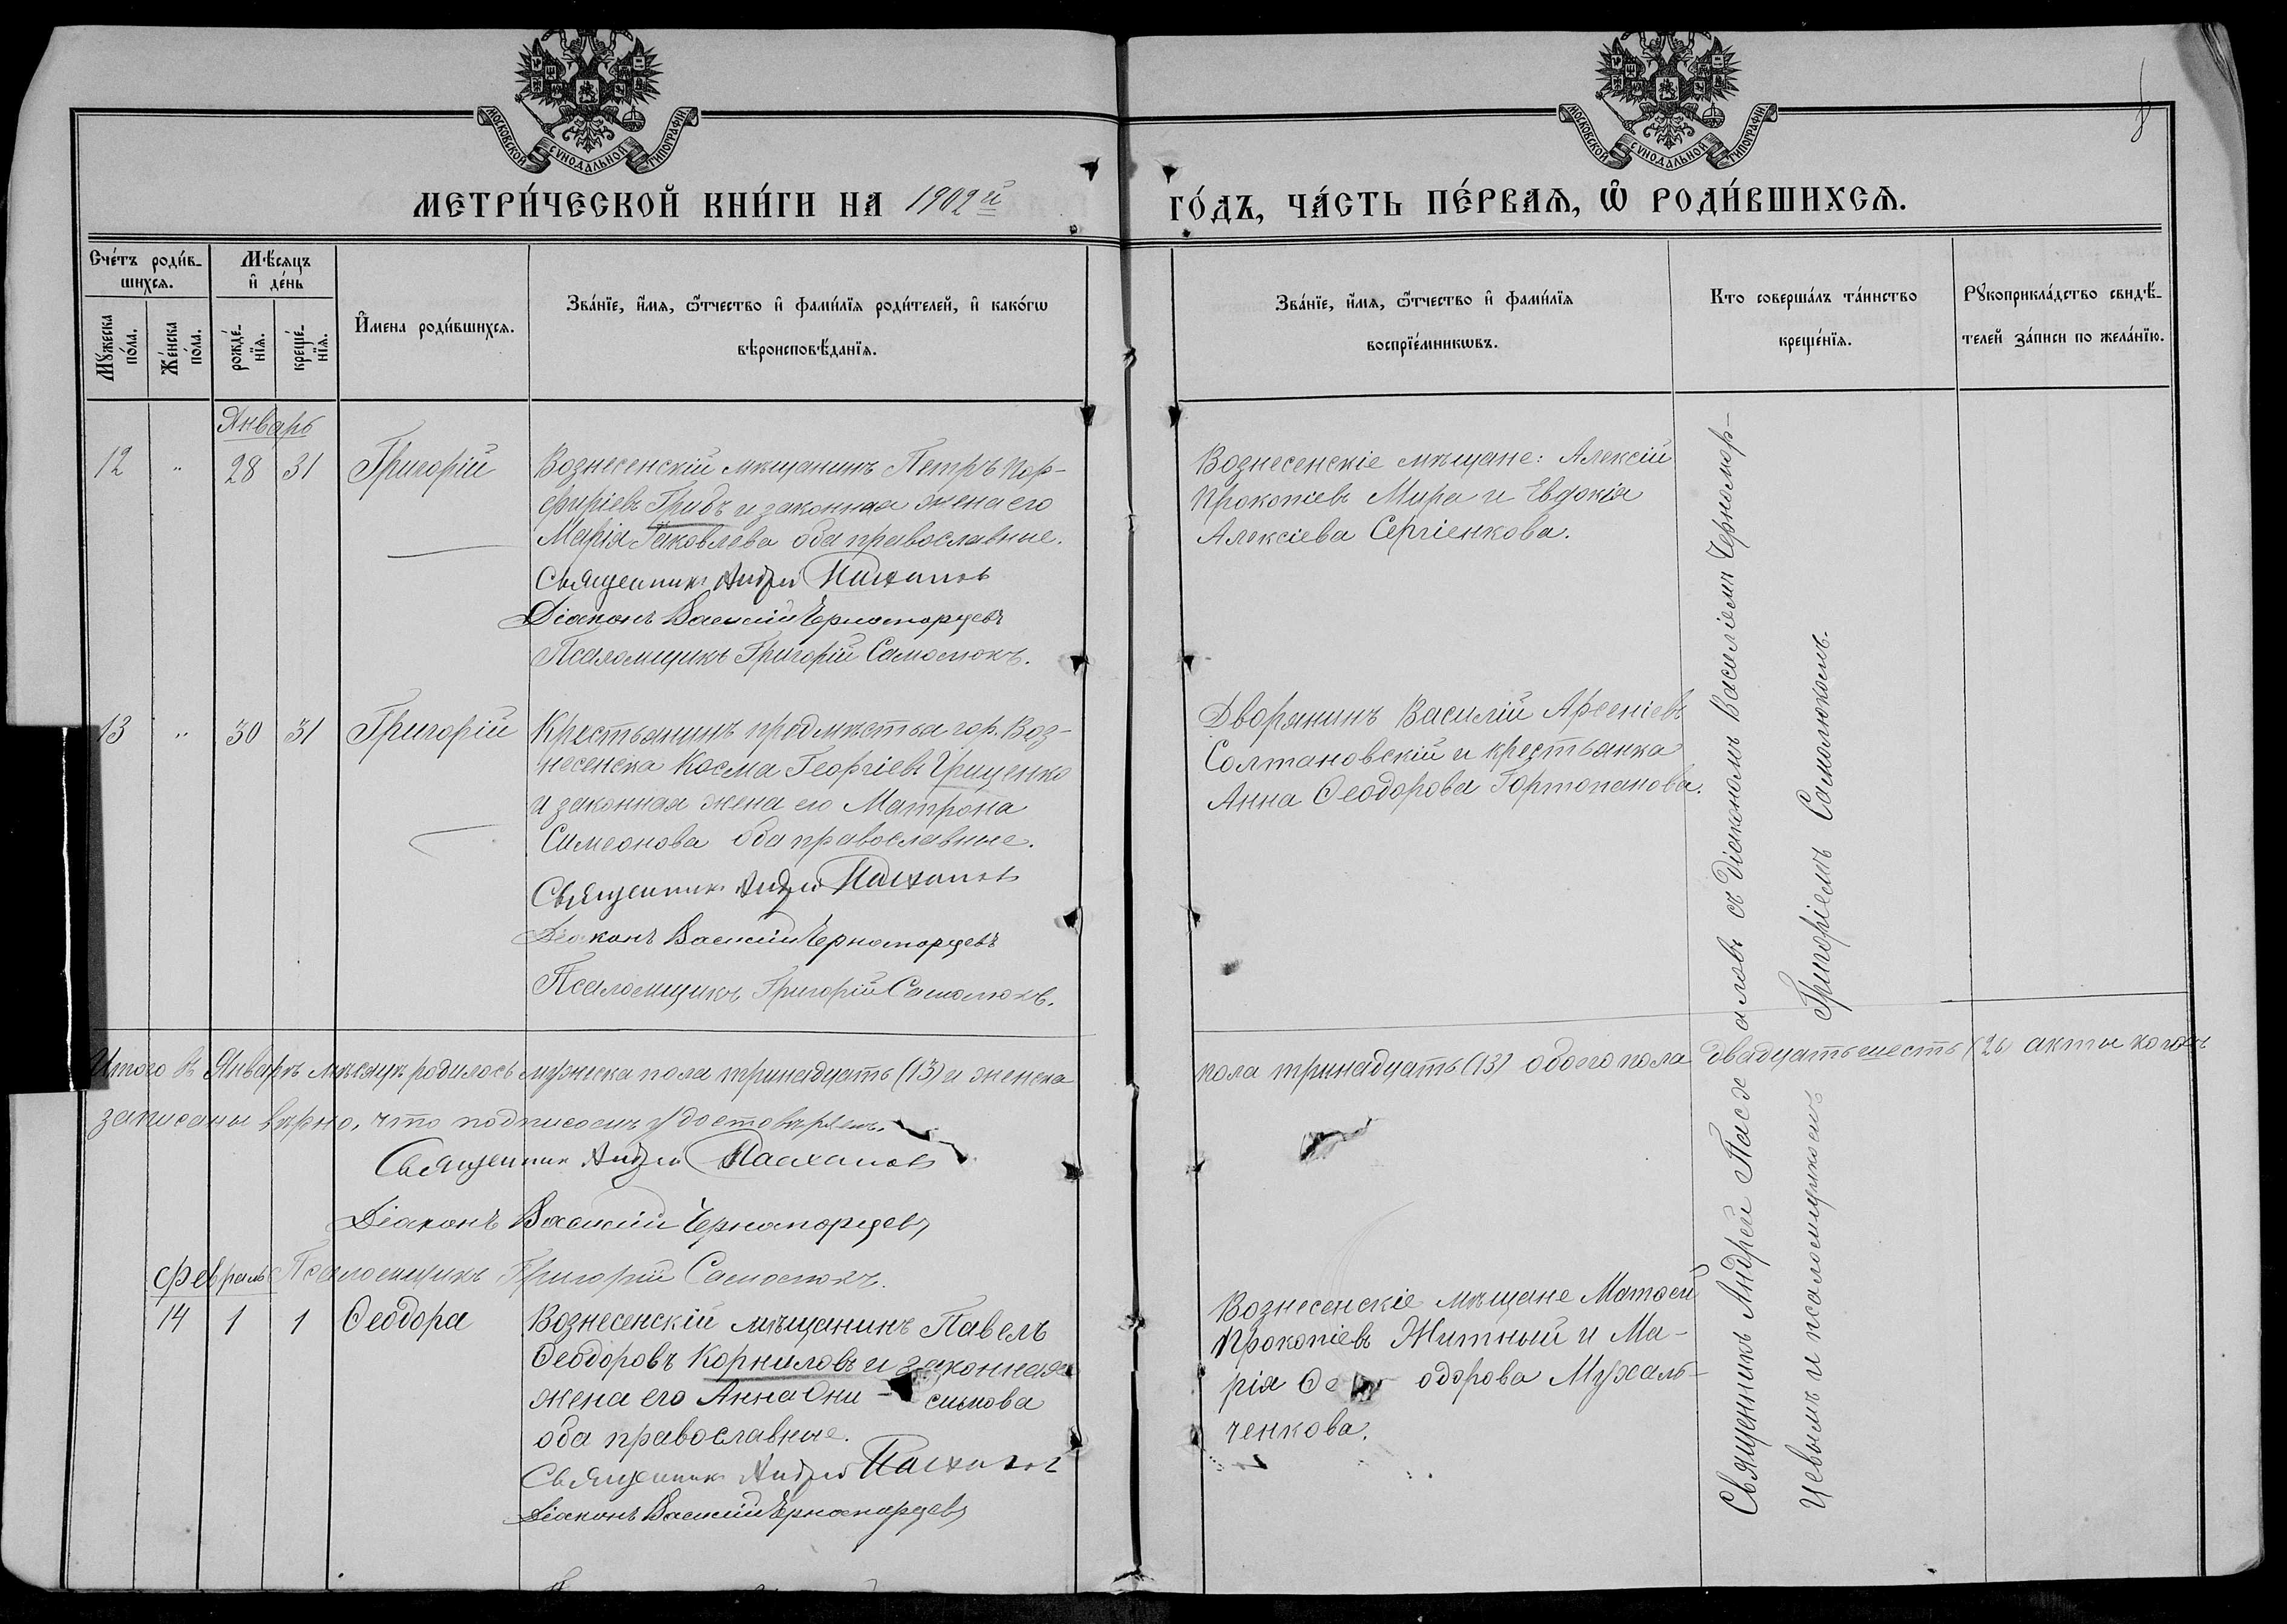 МОСКОВСКОЙ СѴНОДАЛЬНОЙ ТИПОГРАФІИ.
МОСКОВСКОЙ СѴНОДАЛЬНОЙ ТИПОГРАФІИ.
МЕТРИ́ЧЕСКОЙ КНИ́ГИ НА 1902й
ГО́ДЪ, ЧА́СТЬ ПЕ́РВАѦ, Ѡ҆ РОДИ́ВШИХСѦ.
Сче́тъ роди́в-
шихсѧ.
Мꙋ́жеска
по́ла.
Же́нска
по́ла.
Мѣ́сѧцъ
и҆ де́нь
рожде́-
нїѧ.
креще́-
нїѧ.
И҆мена роди́вшихсѧ.
Зва́нїе, и҆́мѧ, ѻ҆́тчество и҆ фами́лїѧ роди́телей, и҆ како́гѡ
вѣроисповѣ́данїѧ.
Зва́нїе, и҆́мѧ, ѻ҆́тчество и҆ фами́лїѧ
воспрїе́мникѡвъ.
Кто соверша́лъ та́инство
креще́нїѧ.
Рꙋкоприкла́дство свидѣ́-
телей за́писи по жела́нїю.
Январь
12 " 28 31 Григорій
Вознесенскій мѣщанинъ Петръ Пор-
фиріевъ Грибъ и законная жена его
Марія Іаковлева оба православные.
Священникъ Андрей Пасхаловъ
Діаконъ Василій Черноморцевъ
Псаломщикъ Григорій Самолюкъ.
Вознесенскіе мѣщане: Алексій
Прокопіевъ Мира и Евдокія
Алексіева Сергіенкова.
13 " 30 31 Григорій
Крестьянинъ предмѣстья гор. Воз-
несенска Косма Георгіевъ Грищенко
и законная жена его Матрона
Симеонова оба православные.
Священникъ Андрей Пасхаловъ
Діаконъ Василій Черноморцевъ
Псаломщикъ Григорій Самолюкъ.
Дворянинъ Василій Арсеніевъ
Солтановскій и крестьянка
Анна Ѳеодорова Гортопанова.
Итого въ Январѣ мѣсяцѣ родилось мужеска пола тринадцать (13) и женска
пола тринадцать (13) обоего пола двадцать шесть (26) акты
записаны вѣрно, что подписомъ удостовѣряемъ.
Священникъ Андрей Пасхаловъ
Діаконъ Василій Черноморцевъ
Псаломщикъ Григорій Самолюкъ.
Февраль
14 1 1 Ѳеодора
Вознесенскій мѣщанинъ Павелъ
Ѳеодоровъ Корниловъ и законная
жена его Анна Они-симова
оба православные.
Священникъ Андрей Пасхаловъ
Діаконъ Василій Черноморцевъ
Вознесенскіе мѣщане Матѳей
Прокопіевъ Житный и Ма-
рія Ѳеодорова Мухаль-
ченкова.
Священникъ Андрей Пасхаловъ съ Діакономъ Василіемъ Черномор-
цевымъ и псаломщикомъ Григоріемъ Самолюкомъ.